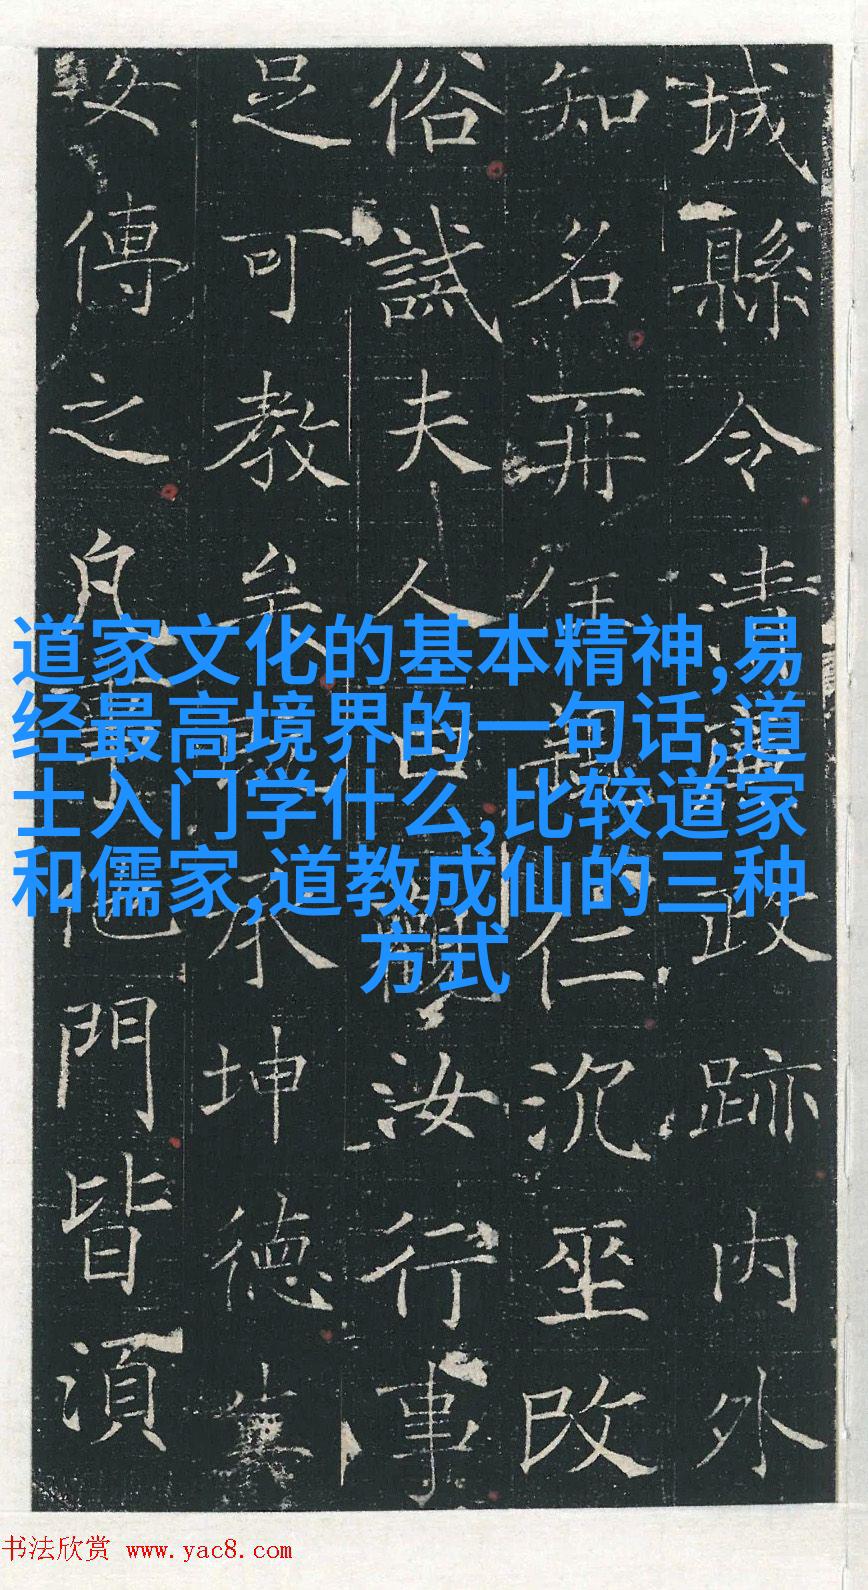 道家文化的基本精神,易
经最高境界的一句话,道
士入门学什么,比较道家
和儒家,道教成仙的三种
方式
城縣令清政跡内外
知名再任仁沉坐改
俗試夫人曰觀汝行事
足可教矣承坤德
傳之凡事他門皆須
书法欣赏 www.yac8.com